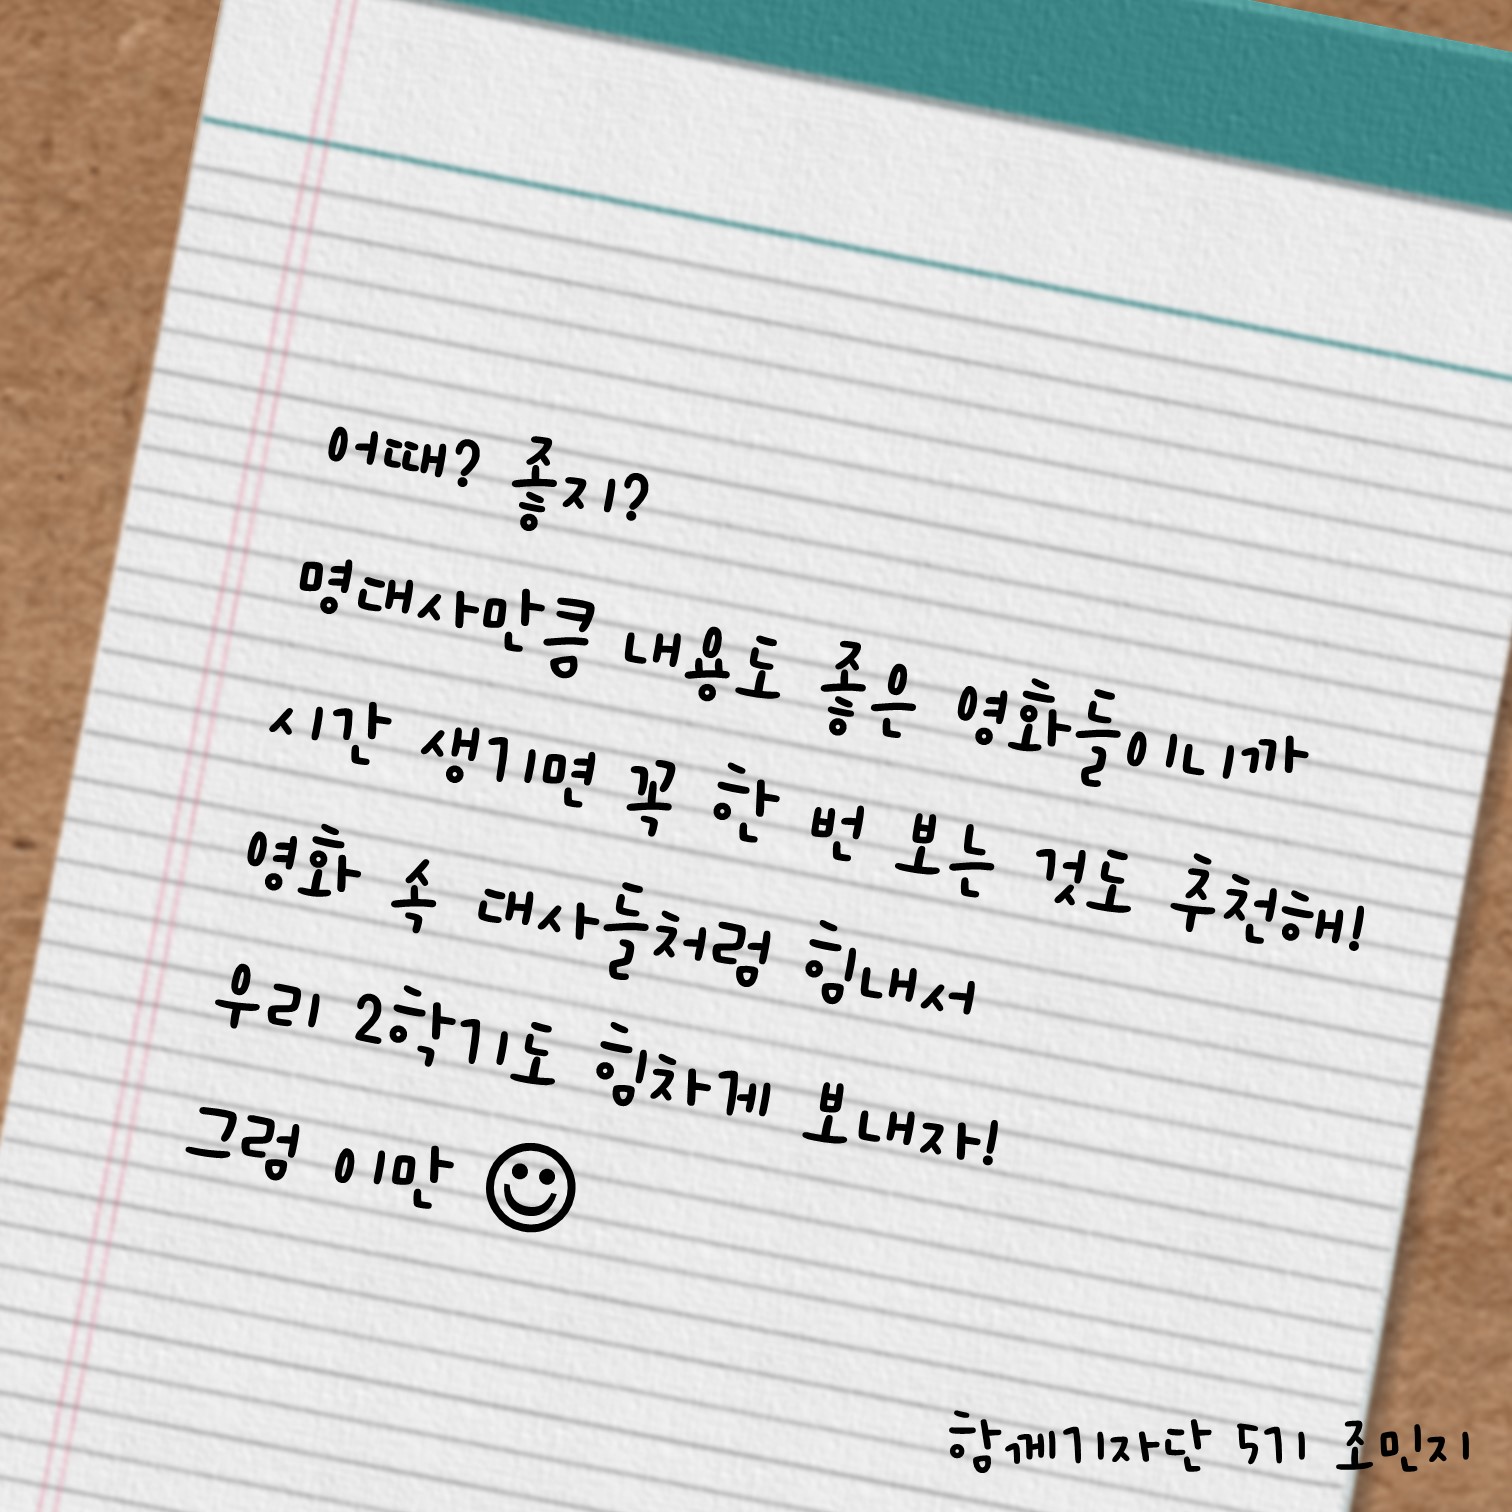 어때? 좋지?
명대사만큼 내용도 좋은 영화들이니까
시간 생기면 꼭 한 번 보는 것도 추천해!
영화 속 대사들처럼 힘내서
우리 2학기도 힘차게 보내자!
그럼 이만
함께기자단 5기 조민지